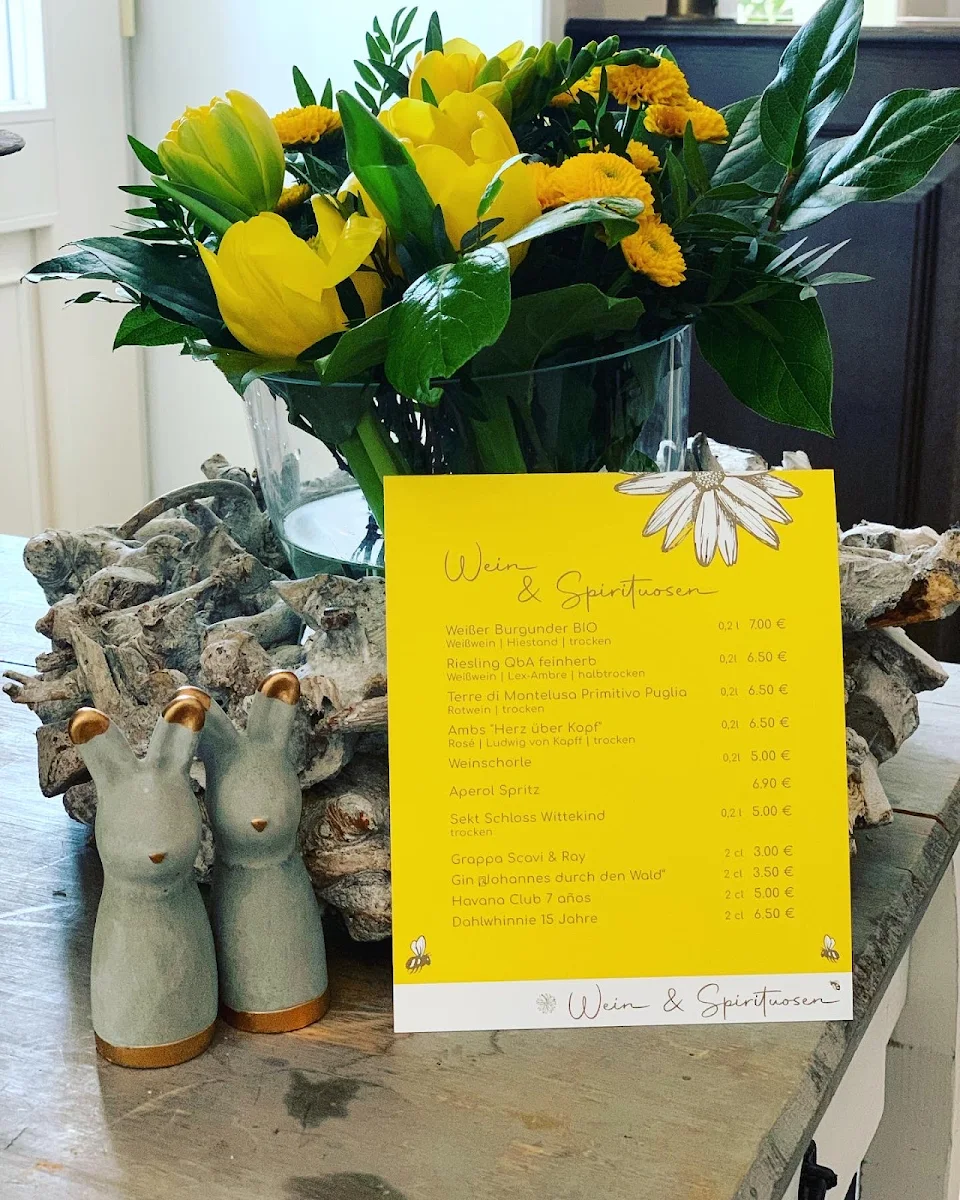 Wein
& Spirituosen
Weißer Burgunder BIO 0,2 l 7.00 €
Weißwein | Hiestand | trocken
Riesling QbA feinherb 0,2l 6.50 €
Weißwein | Lex-Ambre | halbtrocken
Terre di Montelusa Primitivo Puglia 0,2l 6.50 €
Rotwein | trocken
Ambs "Herz über Kopf" 0,2l 6.50 €
Rosé | Ludwig von Kapff | trocken
Weinschorle 0,2l 5.00 €
Aperol Spritz 6.90 €
Sekt Schloss Wittekind 0,2 l 5.00 €
trocken
Grappa Scavi & Ray 2 cl 3.00 €
Gin „Johannes durch den Wald" 2 cl 3.50 €
Havana Club 7 años 2 cl 5.00 €
Dahlwhinnie 15 Jahre 2 cl 6.50 €
Wein & Spirituosen